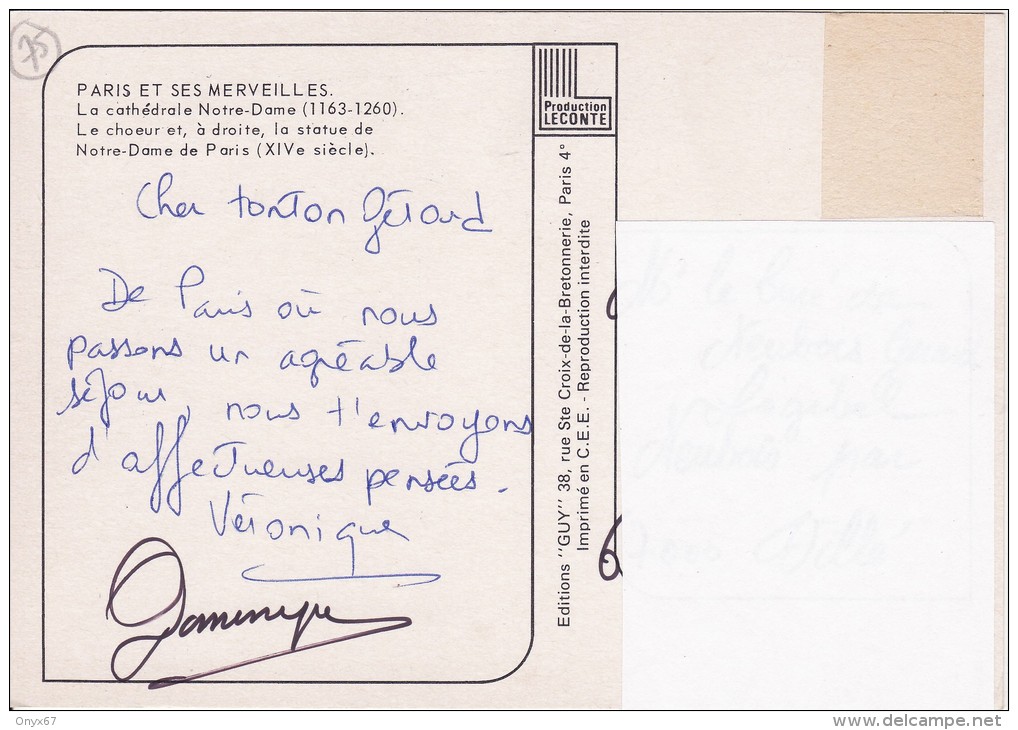 75
PARIS ET SES MERVEILLES.
La cathédrale Notre-Dame (1163-1260).
Le choeur et, à droite, la statue de
Notre-Dame de Paris (XIVe siècle).
Production
LECONTE
Cher tonton Gérard
De Paris où nous
passons un agréable
séjour, nous t'envoyons
d'affectueuses pensées.
Véronique
Dominique
Editions "GUY" 38, rue Ste Croix-de-la-Bretonnerie, Paris 4°
Imprimé en C.E.E. - Reproduction interdite
Onyx67
www.delcampe.net